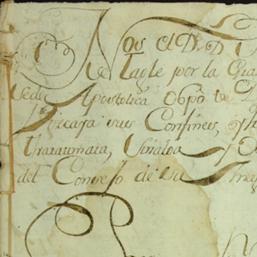 Nos el D.r D.
Tagle por la Gra
Sede Apostolica, Obpo de
Vizcaja sus Confines,
Taraumara, Sinaloa y
del Consejo de su Mag